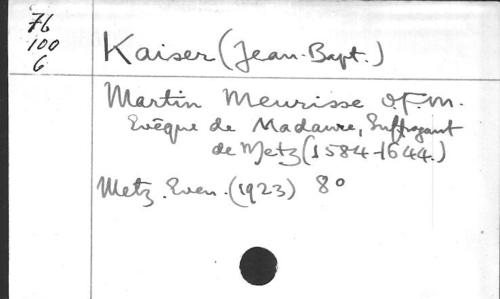 76
100
6
Kaiser (Jean-Bapt.)
Martin Meurisse O.F.M.
Evêque de Madaure, Suffragant
de Metz (1584-1644.)
Metz. Even. (1923) 8°